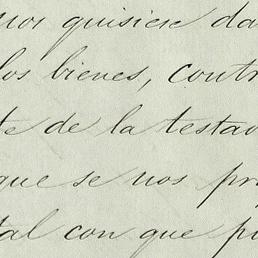 nos quisiere da
los bienes, contr
te de la testa
que se nos pr
tal con que p